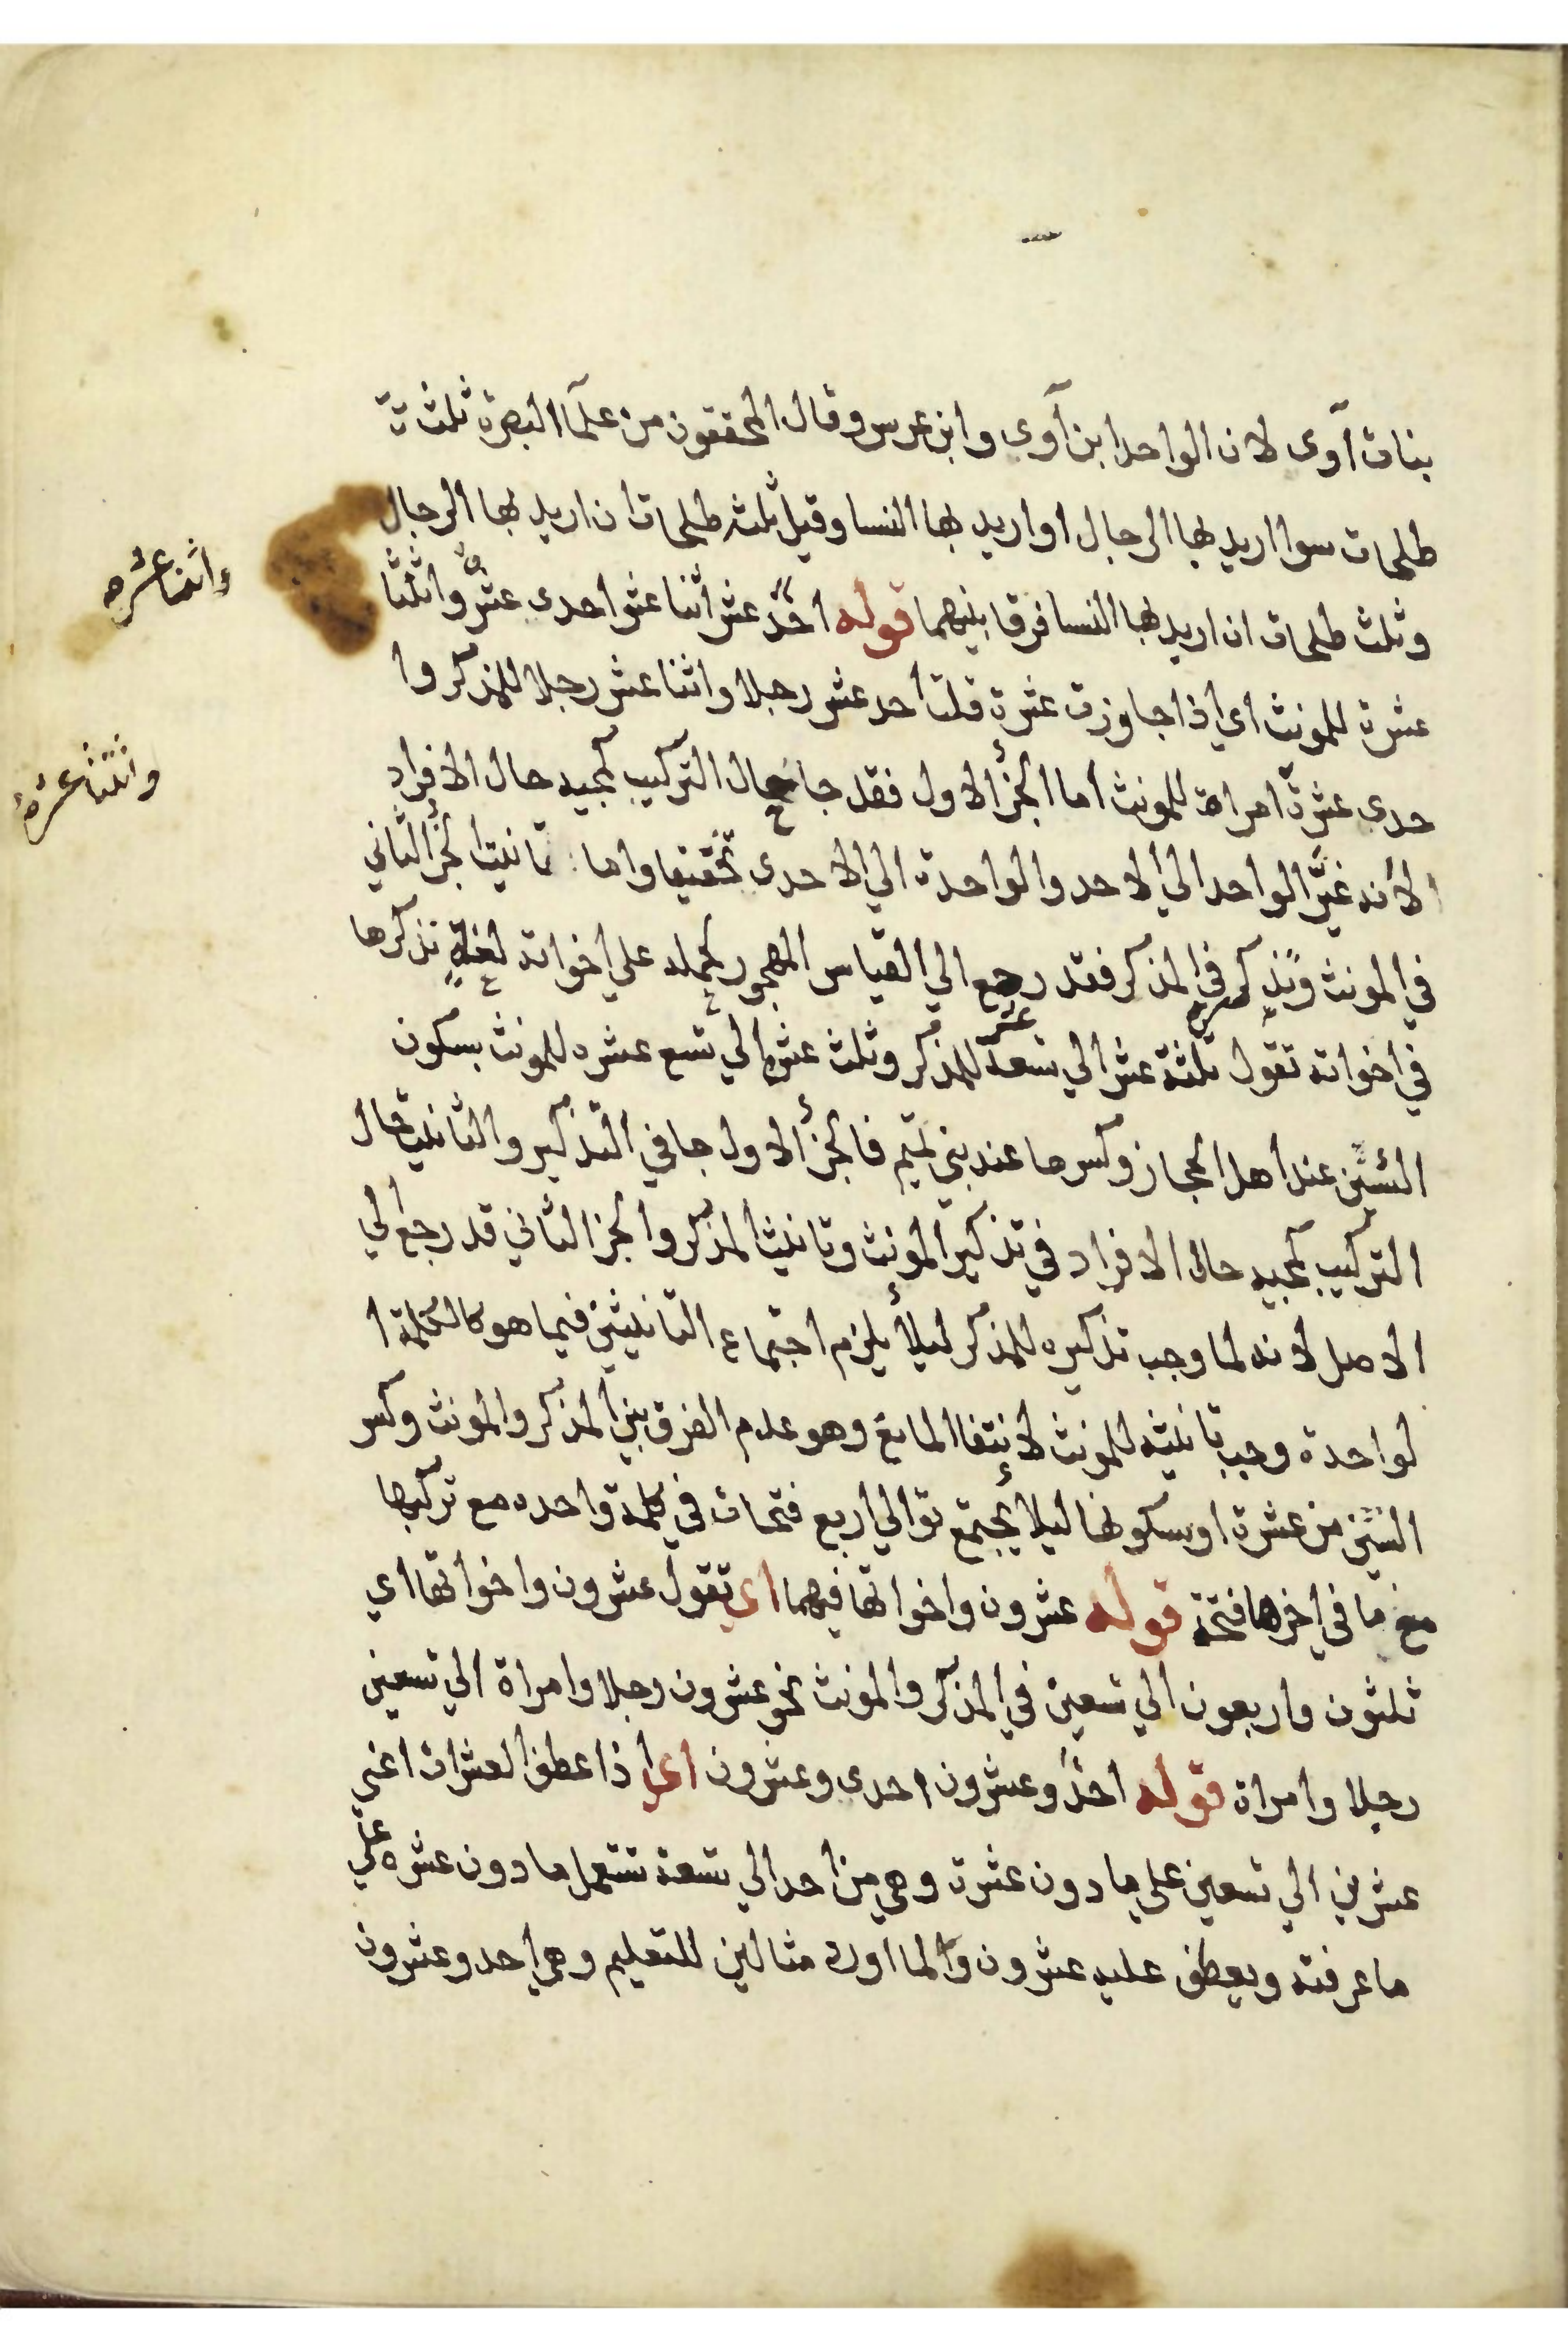 بنات آوى لان الواحد ابن آوى وابن عرس وقال المحققون من علمآ البصرة ثلثة
طلحات سوا اريد بها الرجال او اريد بها النسا وقيل ثلثه طلحات ان اريد بها الرجال
وثلث طلحات ان اريد بها النسا فرقا بينهما قوله احدَ عشر اثنا عشر احدى عشرة واثنتا
عشرة للمونث اي اذا جاوزت عشرة قلت احد عشر رجلا واثنا عشر رجلا للمذكر وا
حدى عشرة امراة للمونث اما الجزء الاول فقد جا حال التركيب كمجيه حال الافراد
الا انه غيّر الواحد الي الاحد والواحدة الي الاحدى تخفيفا واما تانيث الجزء الثاني
في المونث وتذكيره في المذكر فقد رجع الي القياس المهجور لحمله علي اخواته لعلة نذكرها
في اخواته تقول ثلثة عشر الي تسعة عشر للمذكر وثلث عشرة الي تسع عشره للمونث بسكون
الشين عند اهل الحجاز وكسرها عند بني تميم فالجزء الاول جا في التذكير والتانيث حال
التركيب كمجيه حال الافراد في تذكير المونث وتانيث المذكر والجز الثاني قد رجع الي
الاصل لانه لما وجب تذكيره للمذكر ليلأ يلزم اجتماع التانيثين فيما هو كالكلمة ا
لواحدة وجب تانيثه للمونث لانتفا المانع وهو عدم الفرق بين المذكر والمونث وكسر
الشين من عشرة او سكونها ليلأ يجتمع توالي اربع فتحات في كلمة واحده مع تركيبها
مع ما في اخرها فتحة قوله عشرون واخواتها فيهما اي تقول عشرون واخواتها اي
ثلثون واربعون الي تسعين في المذكر والمونث نحو عشرون رجلا وامراة الي تسعين
رجلا وامراة قوله احدٌ وعشرون احدى وعشرون اي اذا عطف العشرات اعني
عشرين الي تسعين علي ما دون عشرة وهي من احد الي تسعة تستعمل ما دون عشره علي
ما عرفته ويعطف عليه عشرون وانما اورد مثالين للتعليم وهي احد وعشرون
واثنتا عشره
واثنتا عشرة